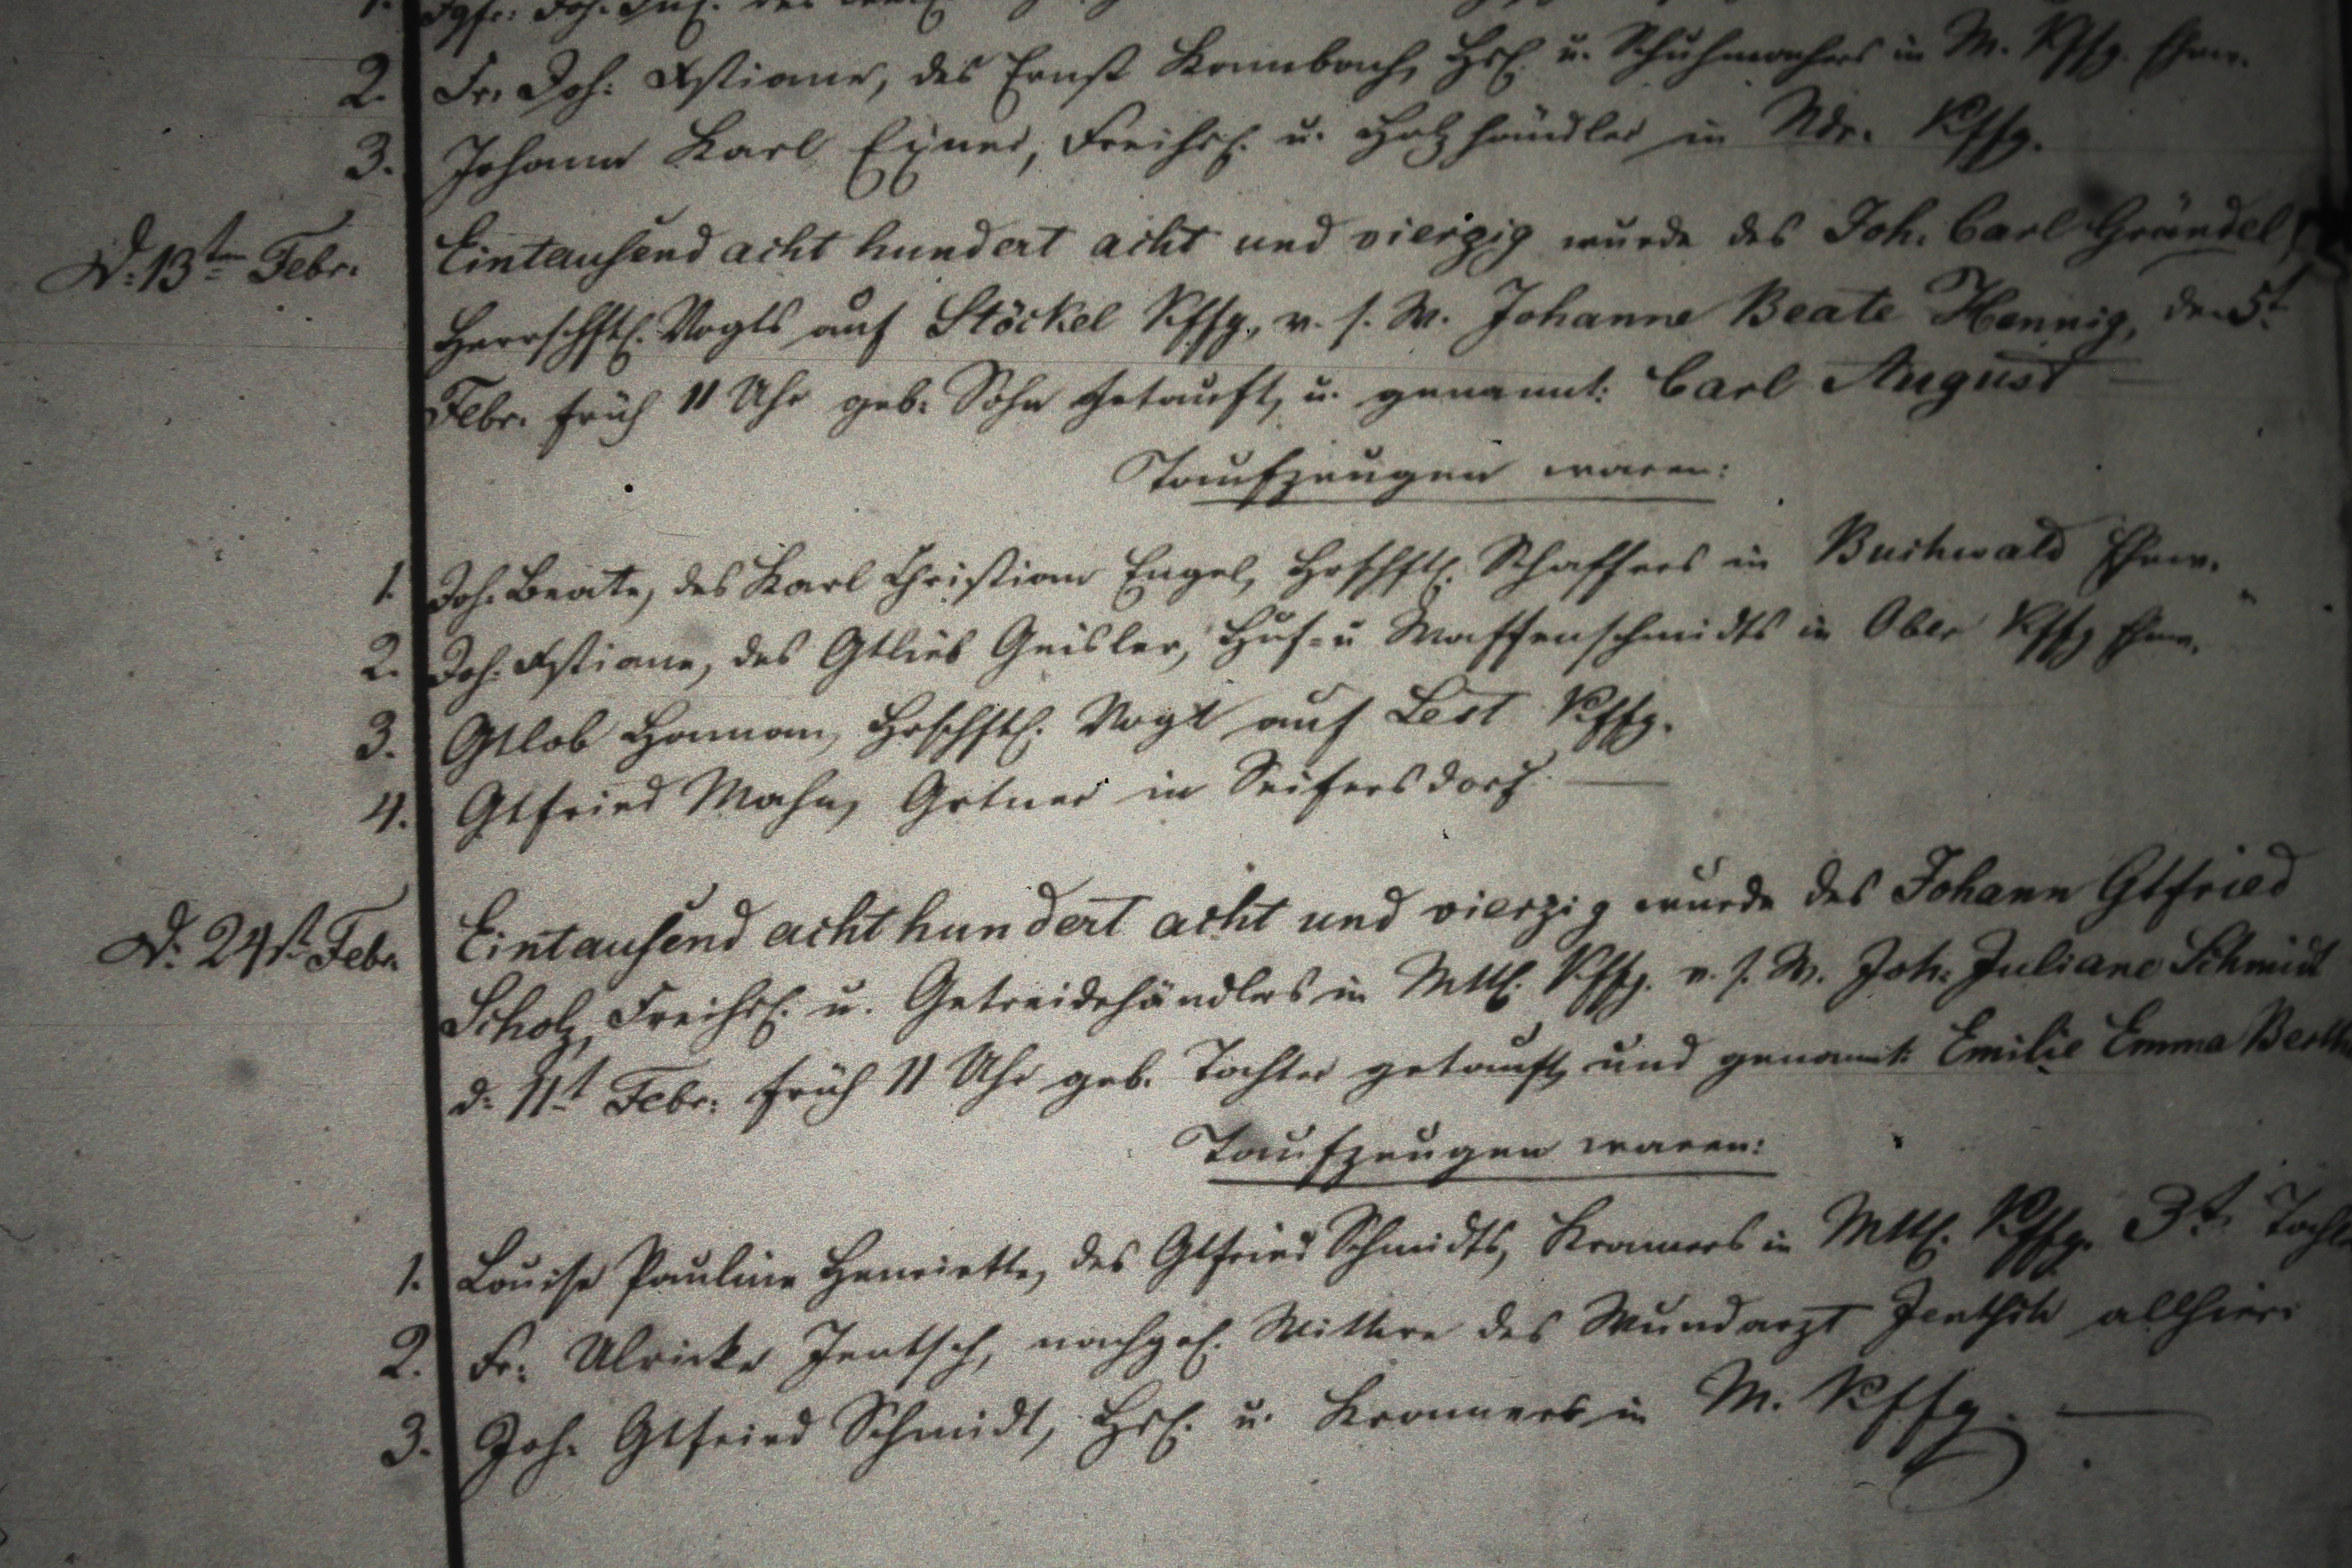 2. Fr. Joh: Xstiane, des Ernst Krumbach, Hsl. u. Schuhmachers in M. Kffg. Ehew.
3. Johann Karl Exner, Freihsl. u. Holzhändler in Ndr. Kffg.
D. 13ten Febr. Eintausend acht hundert acht und vierzig wurde des Joh. Carl Gründel,
Herrschftl. Vogts auf Stöckel Kffg., v. s. W. Johanne Beate Hennig, den 5t.
Febr. früh 11 Uhr geb. Sohn getauft, u. genannt: Carl August
Taufzeugen waren:
1. Joh. Beate, des Karl Christian Engel, Hrschftl. Schaffers in Buchwald Ehew.
2. Joh. Xstiane, des Gtlieb Geisler, Huf- u Waffenschmidts in Ober Kffg Ehew.
3. Gtlob Hamann, Hrschftl. Vogt auf Lest Kffg.
4. Gtfried Mahn, Grtner in Seifersdorf.
D. 24st. Febr. Eintausend acht hundert acht und vierzig wurde des Johann Gtfried
Scholz, Freihsl. u. Getreidehändlers in Mttl. Kffg. v. s. W. Joh: Juliane Schmidt
d. 11t Febr: früh 11 Uhr geb. Tochter getauft, und genannt: Emilie Emma
Taufzeugen waren:
1. Louise Pauline Henriette, des Gtfried Schmidts, Kramers in Mttl. Kffg. 3t.
2. Fr: Ulricke Jentsch, nachgel. Wittwe des Wundarzt Jentsch allhier
3. Joh. Gtfried Schmidt, Hsl. u. Kramers in M. Kffg.